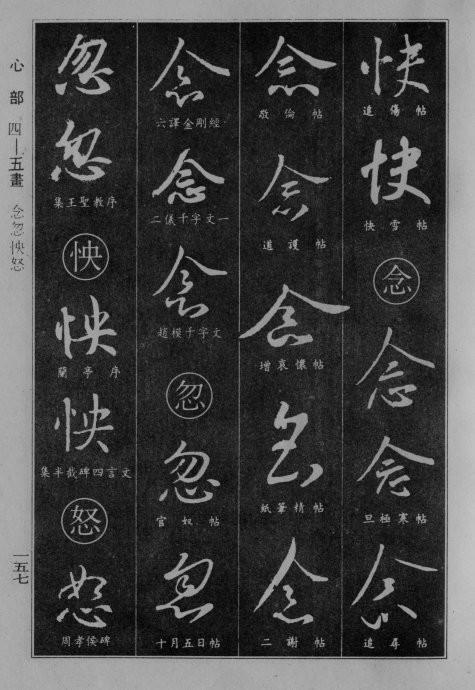 快
追傷帖
快
快雪帖
念
念
念
旦極寒帖
念
追尋帖
念
敬倫帖
念
道護帖
念
增哀懷帖
念
紙筆精帖
念
二謝帖
念
六譯金剛經
念
二儀千字文一
念
趙模千字文
忽
忽
官奴帖
忽
十月五日帖
忽
忽
集王聖教序
怏
怏
蘭亭序
怏
集半截碑四言文
怒
怒
周孝侯碑
心部 四—五畫 念忽怏怒
一五七